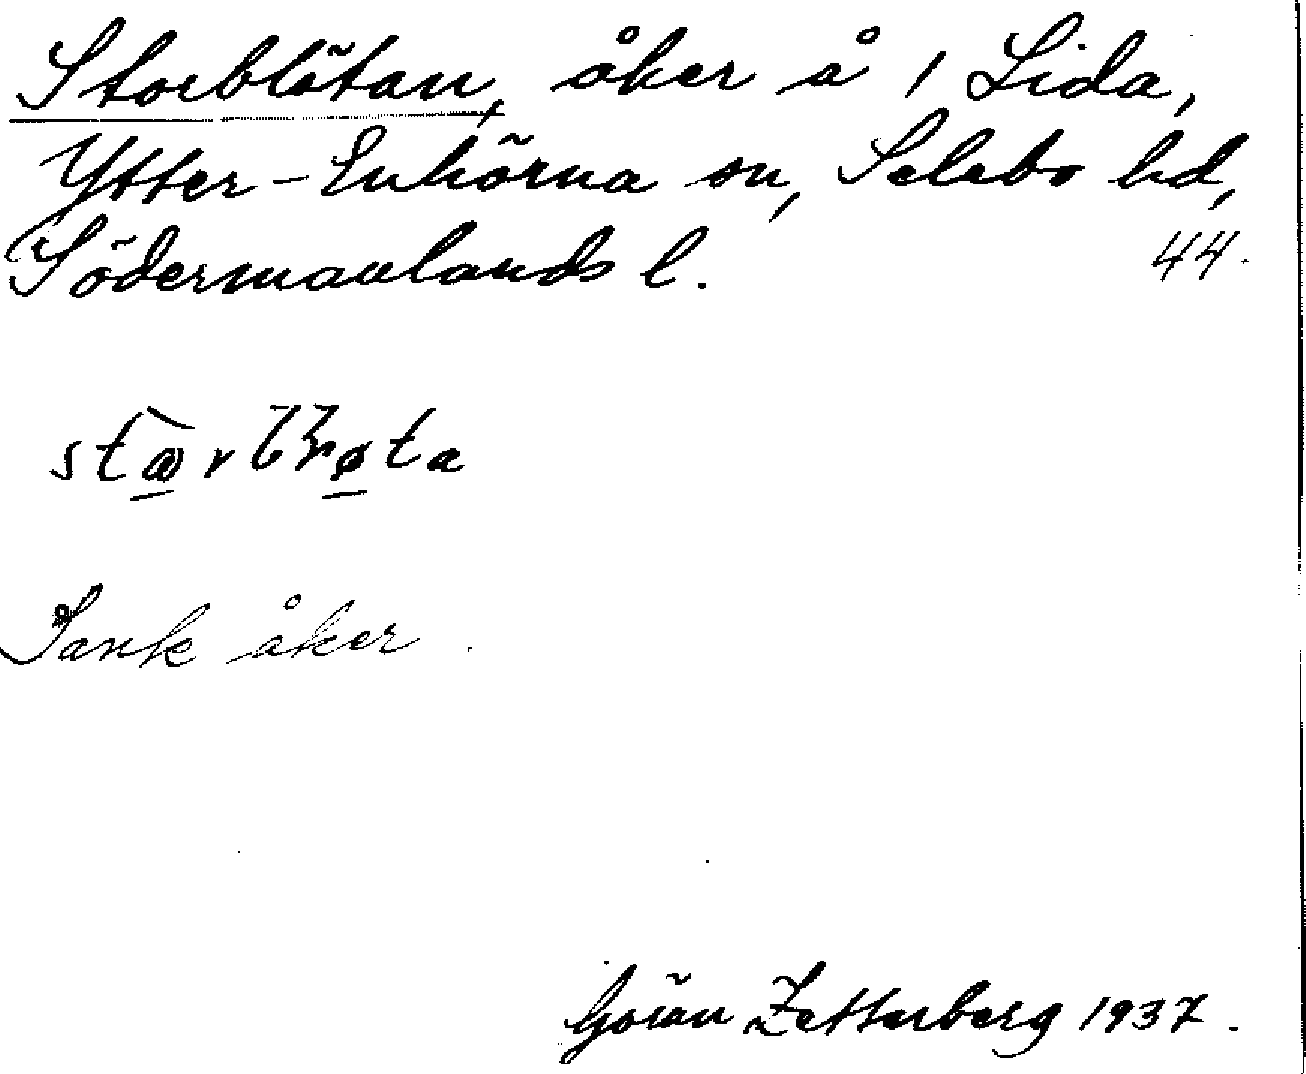 Storblötan, åker å 1 Lida,
Ytter-Enhörna sn, Selebo hd,
Södermanlands l.
44.
Sank åker.
Göran Zetterberg 1937.